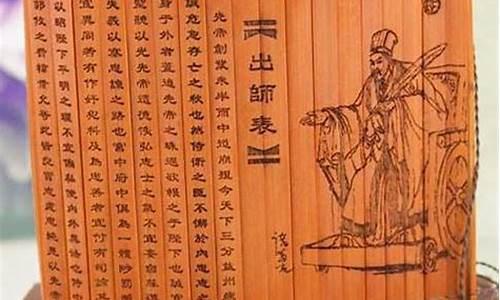 出師表
先帝創業未半而中道崩殂今天下三分益州疲
誠危急存亡之秋也然侍衛之臣不懈於內忠志之
身于外者蓋追先帝之殊遇欲報之于陛下也誠宜
聖聽以光先帝遺德恢弘志士之氣不宜妄自菲薄
失義以塞忠諫之路也宮中府中俱為一體陟罰
宜異同若有作奸犯科及為忠善者宜付有司論其
以昭陛下平明之理不宜偏私使內外異法也侍中
郭攸之費禕董允等此皆良實志慮忠純是以先帝
諸葛亮